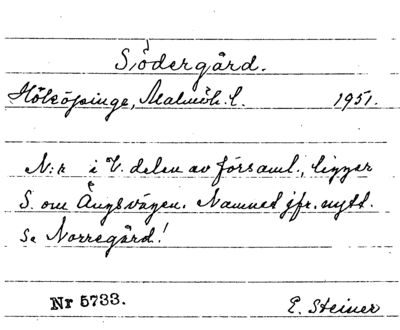 Södergård.
Hököpinge, Malmöh. l. 1951.
N:r i V. delen av församl., ligger
S. om Ängsvägen. Namnet jfr. nytt.
Se Norregård!
Nr 5733. E. Steiner